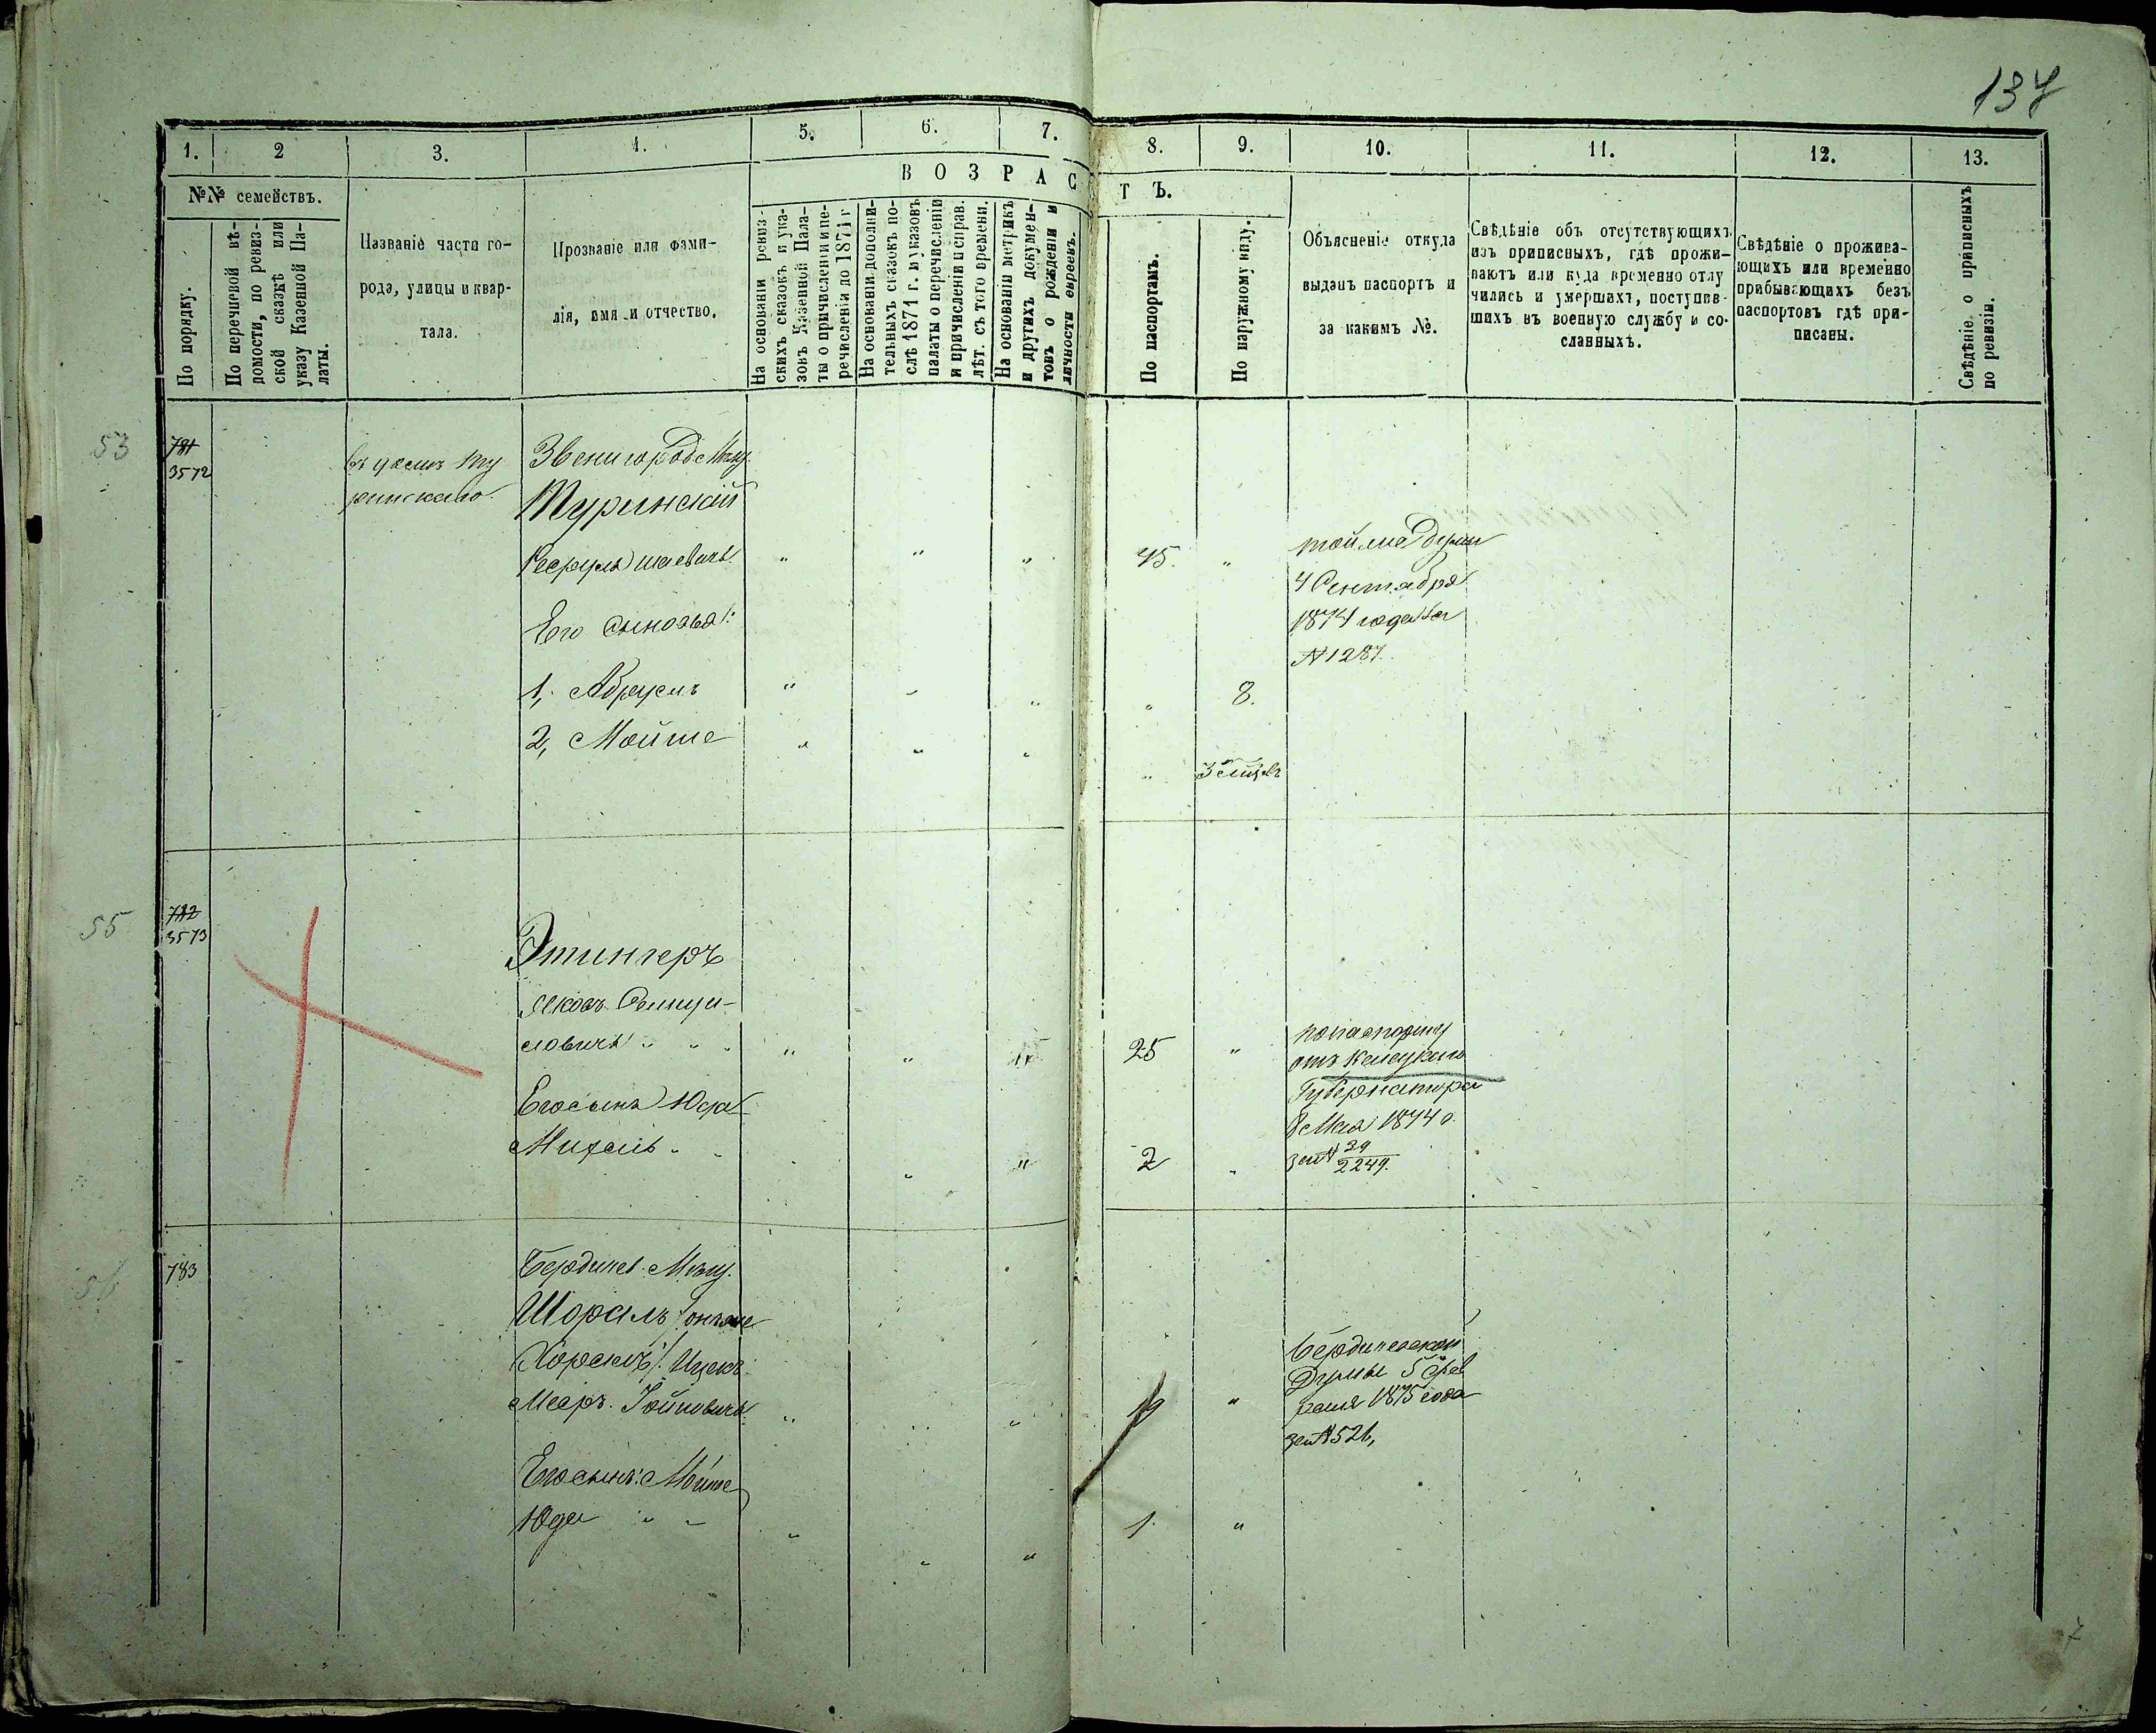 137
1. 2 3. 4. 5. 6. 7. 8. 9. 10. 11. 12. 13.
№№ семействъ.
По порядку.
По перечневой вѣ-
домости, по ревиз-
ской сказкѣ или
указу Казенной Па-
латы.
Названіе части го-
рода, улицы и квар-
тала.
Прозваніе или фами-
лія, имя и отчество.
ВОЗРАСТЪ.
На основаніи ревиз-
скихъ сказокъ и ука-
зовъ Казенной Пала-
ты о причисленіи и пе-
речисленіи до 1871 г
На основаніи дополни-
тельныхъ сказокъ по-
слѣ 1871 г. и указовъ
палаты о перечисленіи
и причисленіи и справ.
лѣт. съ того времени.
На основаніи метрикъ
и другихъ докумен-
товъ о рожденіи и
личности евреевъ.
По паспортамъ.
По наружному виду.
Объясненіе откуда
выданъ паспортъ и
за какимъ №.
Свѣдѣніе объ отсутствующихъ
изъ приписныхъ, гдѣ прожи-
ваютъ или куда временно отлу
чились и умершихъ, поступив-
шихъ въ военную службу и со-
сланныхъ.
Свѣдѣніе о прожива-
ющихъ или временно
прибывающихъ безъ
паспортовъ гдѣ при-
писаны.
Свѣдѣніе о приписныхъ
по ревизіи.
53
781
3572
въ домѣ Ту
ринскаго
Звенигородс Мѣщ.
Туринскій
" " " 45. "
той же Думы
4 Сентября
1874 года за
№ 1287.
Его сыновья:
1, Абрумъ " " " " 8.
2, Мойше " " " " 3 мѣс
55
782
3573
Этингеръ
Яковъ
словичъ " " " " 25 "
по паспорту
отъ Келецкаго
Губернатора
8 Мая 1874 г.
за № 29
2249.
Его сынъ Юда
Михель " " " " 2 "
56
783
Бердичев. Мѣщ.
Шорсмъ / онъ же
Хорсмъ / Ицекъ
Мееръ " " 19 "
Бердичевской
Думы 5 Фев
раля 1875 года
за № 526,
Его сынъ: Мойше
Юда " " " " 1. "
7